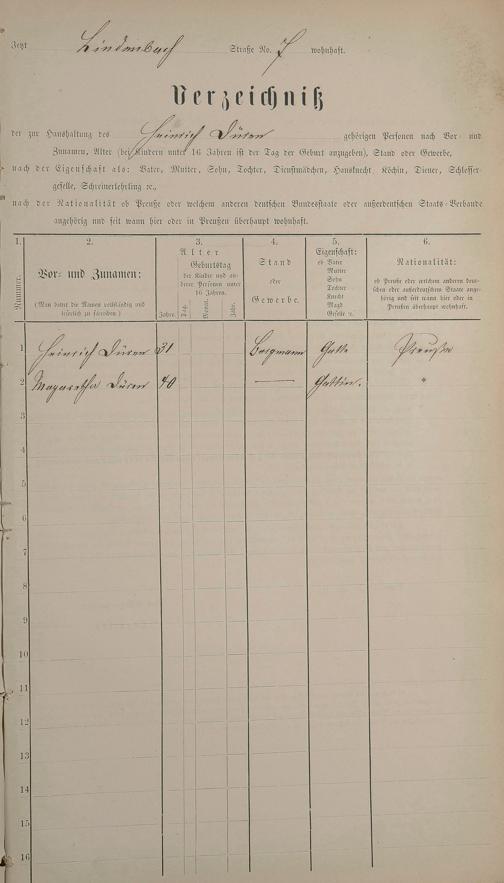 Jetzt Lindenbach Straße No. 7 wohnhaft.
Verzeichniß
der zur Haushaltung des Heinrich Düren gehörigen Personen nach Vor- und
Zunamen, Alter (bei Kindern unter 16 Jahren ist der Tag der Geburt anzugeben), Stand oder Gewerbe,
nach der Eigenschaft als: Vater, Mutter, Sohn, Tochter, Dienstmädchen, Hausknecht, Köchin, Diener, Schlosser-
geselle, Schreinerlehrling ꝛc.,
nach der Nationalität ob Preuße oder welchem anderen deutschen Bundesstaate oder außerdeutschen Staats-Verbande
angehörig und seit wann hier oder in Preußen überhaupt wohnhaft.
1. 2. 3. 4. 5. 6.
Nummer.
Vor- und Zunamen:
(Man bittet die Namen vollständig und
leserlich zu schreiben)
Alter
Geburtstag
der Kinder und an-
derer Personen unter
16 Jahren.
Jahre. Tag. Monat. Jahr.
Stand
oder
Gewerbe.
Eigenschaft:
ob Vater
Mutter
Sohn
Tochter
Knecht
Magd
Geselle ꝛc.
Nationalität:
ob Preuße oder welchem anderen deut-
schen oder außerdeutschen Staate ange-
hörig und seit wann hier oder in
Preußen überhaupt wohnhaft.
1 Heinrich Düren 31 Bergmann Gatte Preuße
2 Magaretha Düren 40 — Gattin. "
3
4
5
6
7
8
9
10
11
12
13
14
15
16